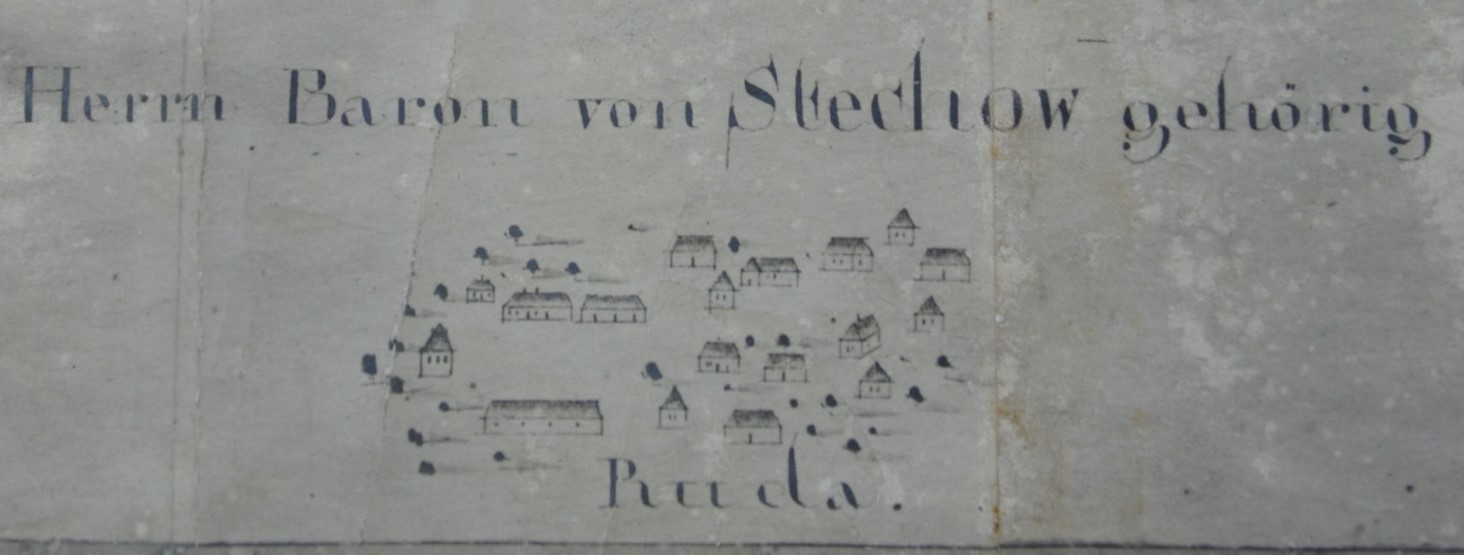 Herrn Baron von Stechow gehörig
Ruda.